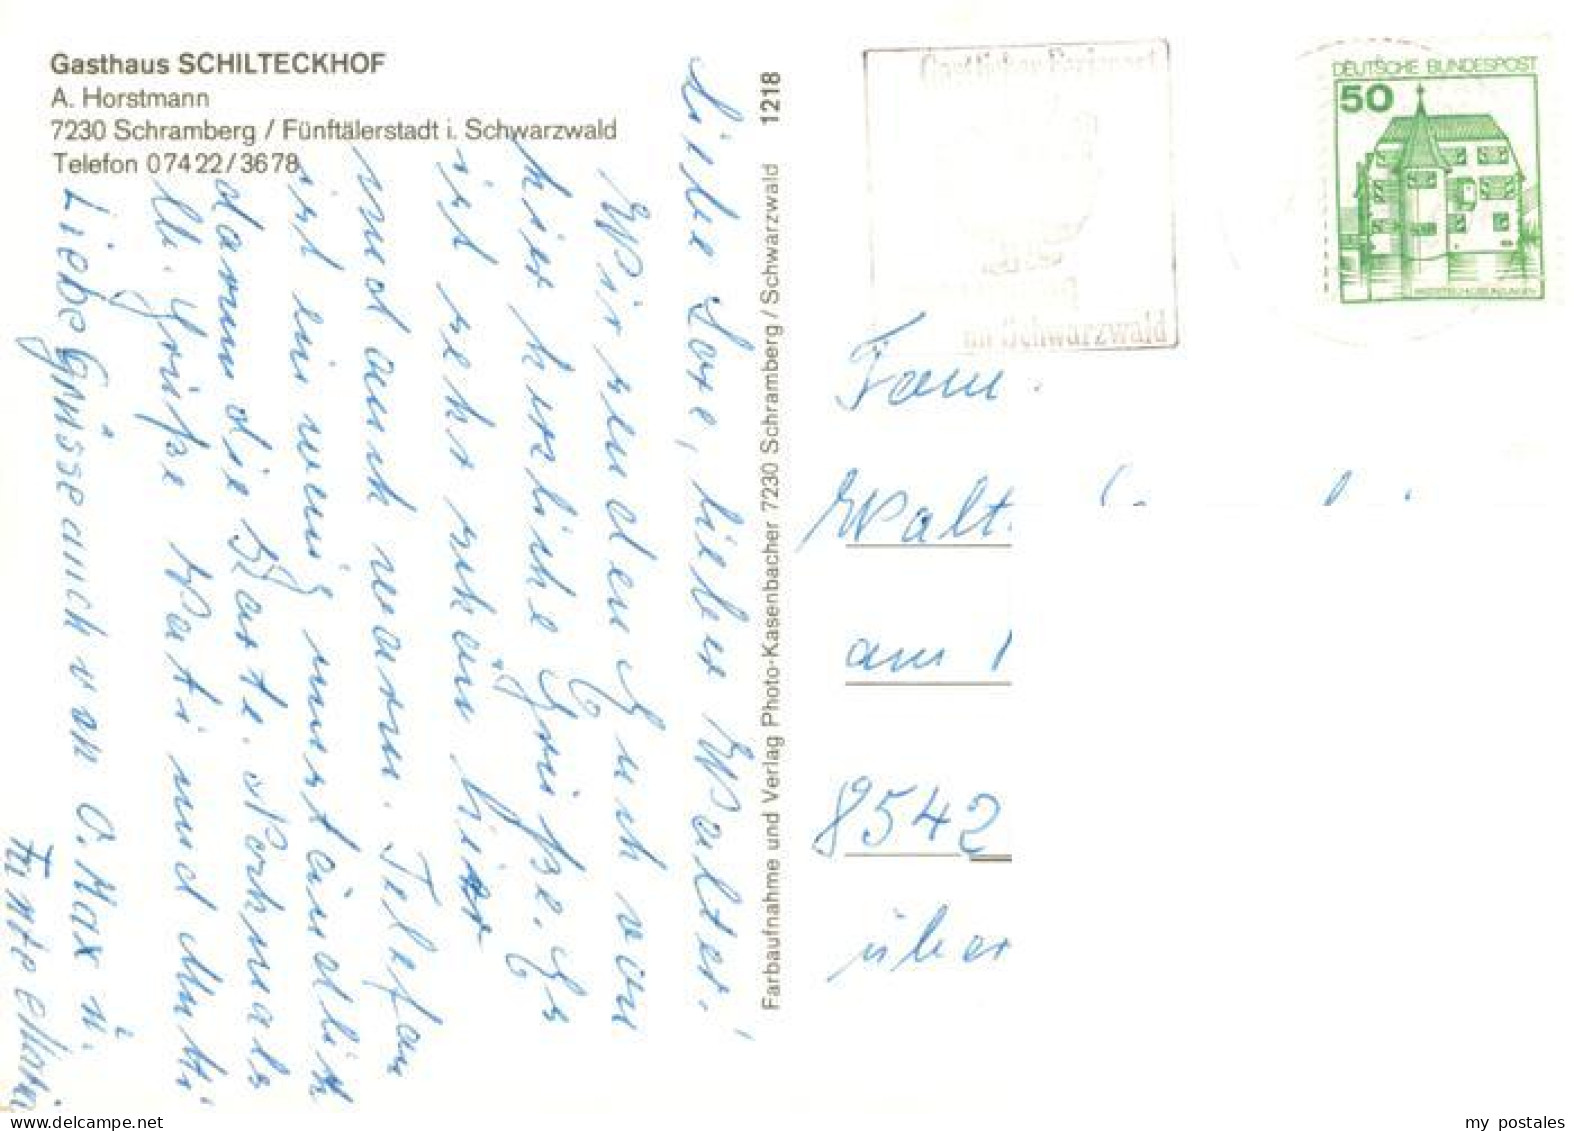 Gasthaus SCHILTECKHOF
A. Horstmann
7230 Schramberg / Fünftälerstadt i. Schwarzwald
Telefon 07422/3678
Liebe Lore, lieber Walter!
Wir senden Euch von
hier herzliche Grüße. Es
ist sehr schön hier
und auch warm. Telefon
ist ein wenig umständlich
darum die Karte. Nochmals
lb. Grüße Vati und Mutti
Liebe Grüsse auch von O. Max u.
Tante
1218
Farbaufnahme und Verlag Photo-Kasenbacher 7230 Schramberg / Schwarzwald
Gastlicher Ferienort
im Schwarzwald
DEUTSCHE BUNDESPOST
50
WASSERSCHLOSS INZLINGEN
Fam.
Walt
am
8542
über
my postales